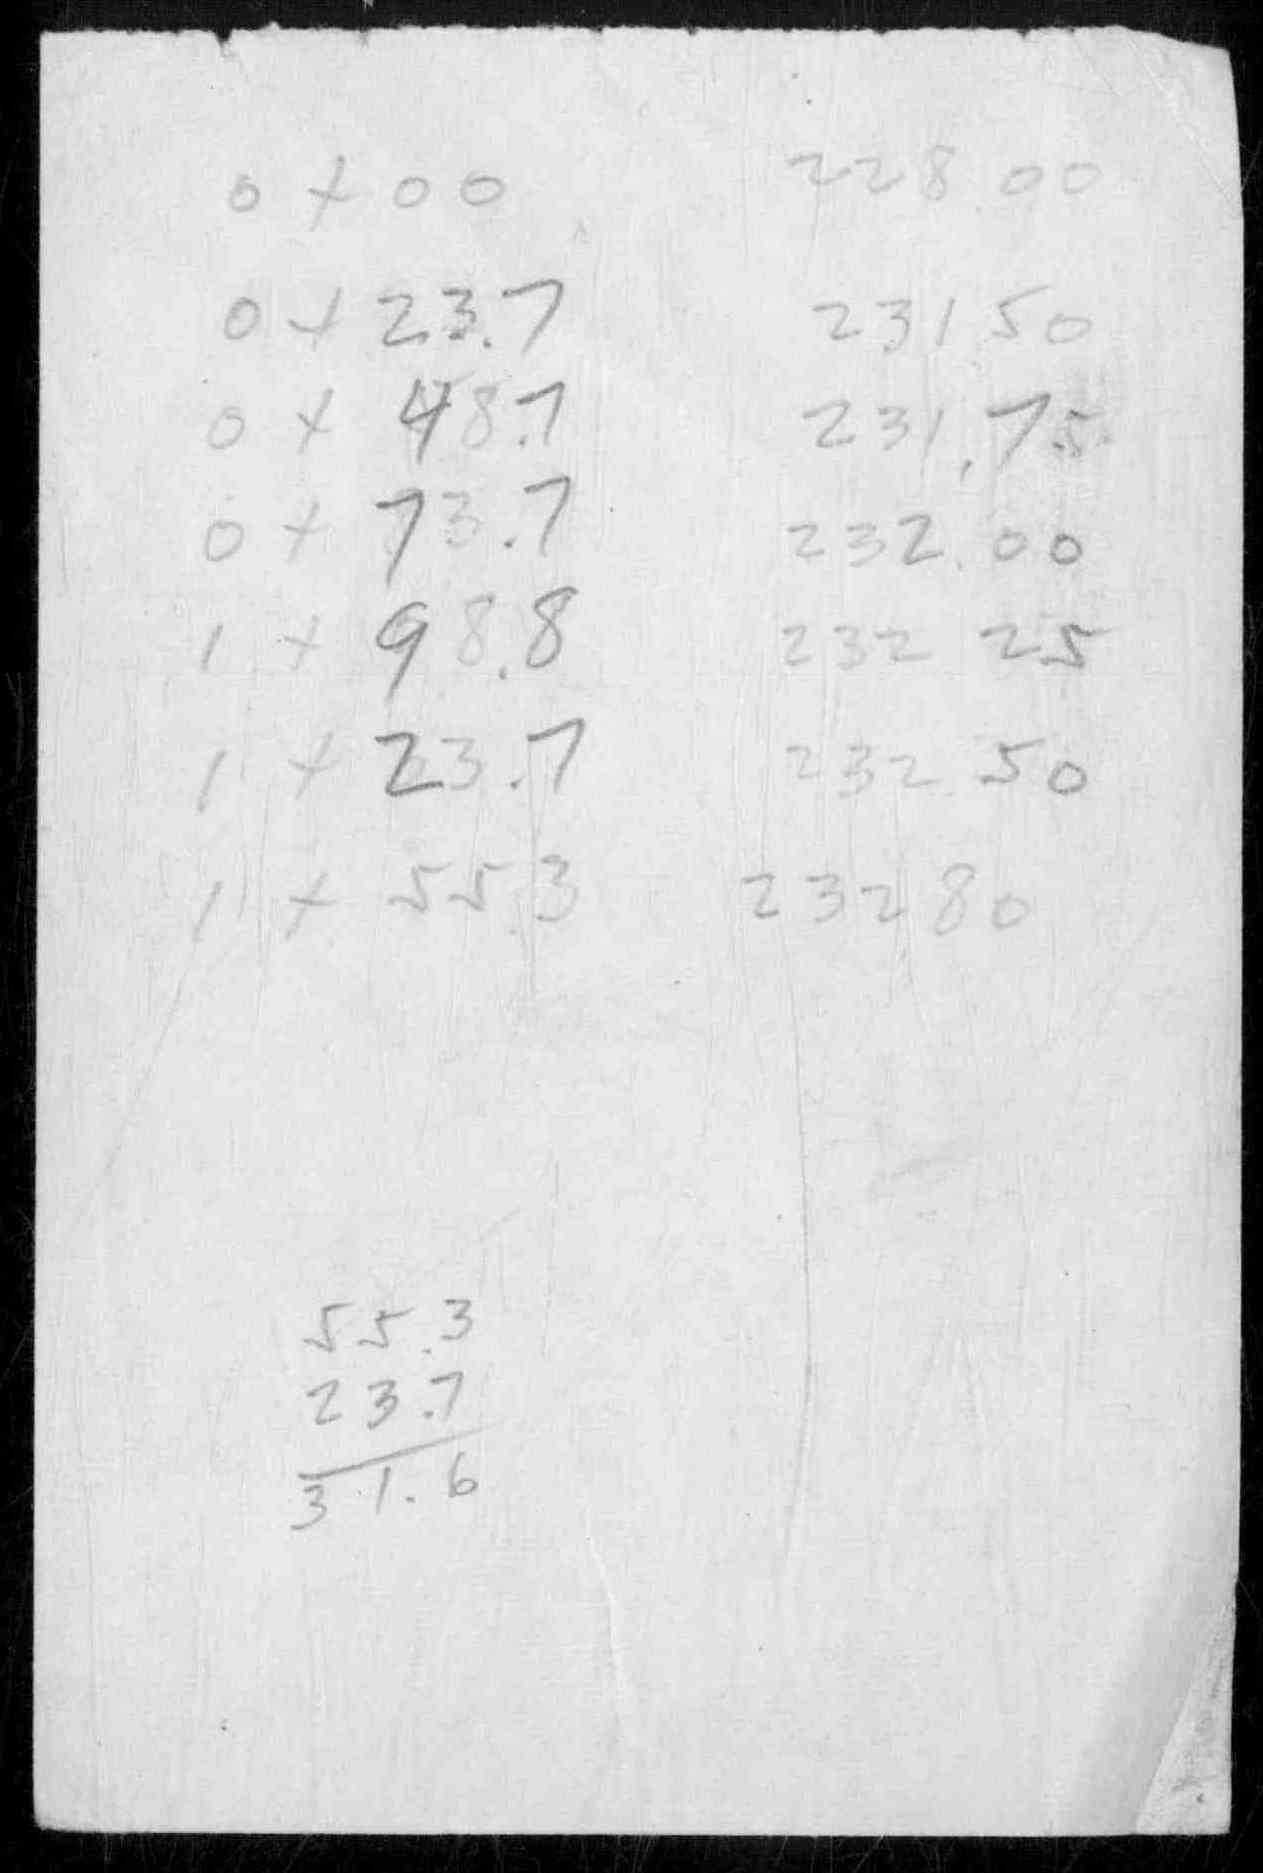 0 + 00 228.00
0 + 23.7 231 50
0 + 48.7 231.75
0 + 73.7 232.00
1 + 98.8 232 25
1 + 23.7 232 50
1 + 55.3 232 80
55.3
23.7
31.6